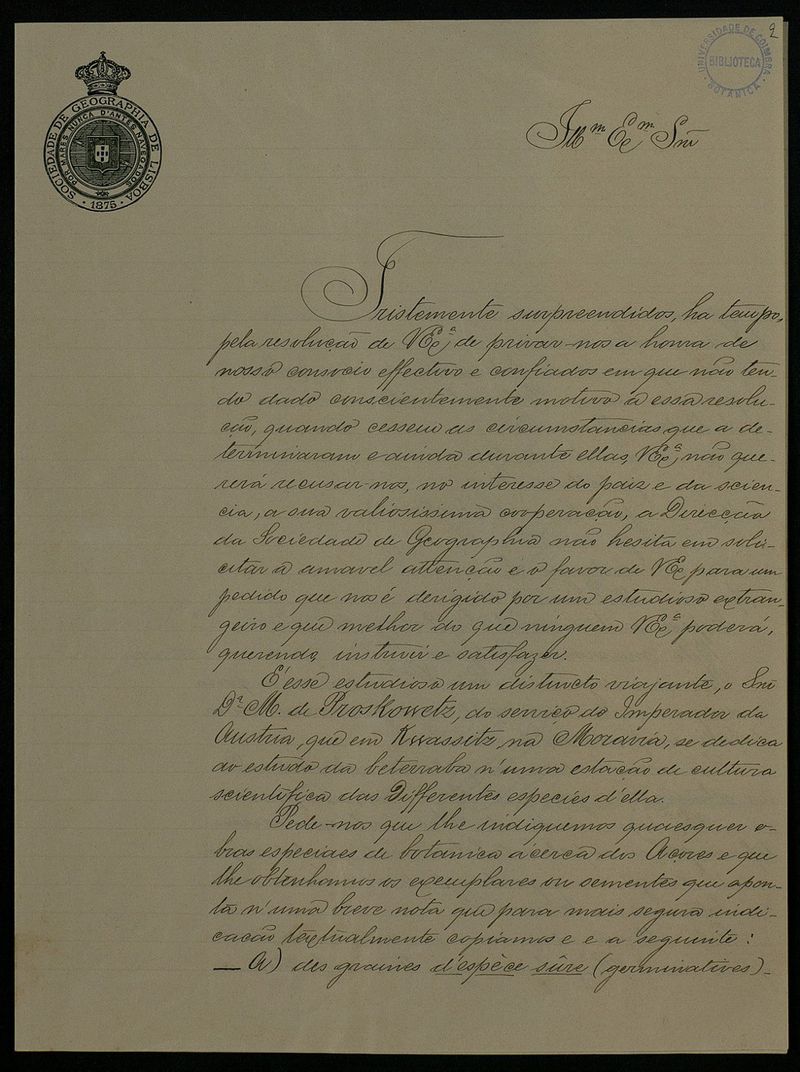 2
UNIVERSIDADE DE COIMBRA
BIBLIOTECA
BOTANICA
SOCIEDADE DE GEOGRAPHIA DE LISBOA
POR MARES NUNCA D'ANTES NAVEGADOS
1875
Illm Exm Snr
Tristemente surpreendidos, ha tempo,
pela resolução de VExª de privar-nos a honra de
nosso consocio effectivo e confiados em que não ten-
do dado conscientemente motivo a essa resolu-
ção, quando cessem as circumstancias que a de-
terminaram e ainda durante ellas, VExª não que-
rerá recusar-nos, no interesse do paiz e da scien-
cia, a sua valiosissima cooperação, a Direcção
da Sociedade de Geographia não hesita em soli-
citar a amavel attenção e o favor de VEx para um
pedido que nos é derigido por um estudioso extran-
geiro e que melhor do que ninguem VExª poderá,
querendo, instruir e satisfazer.
É esse estudioso um distincto viajante, o Snr
Dr M. de Proskowetz, do serviço do Imperador da
Austria, que em Kwassitz, na Moravia, se dedica
ao estudo da beterraba n'uma estação de cultura
scientifica das differentes especies d'ella.
Pede-nos que lhe indiquemos quaesquer o-
bras especiaes de botanica ácerca dos Açores e que
lhe obtenhamos os exemplares ou sementes que apon-
ta n'uma breve nota que para mais segura indi-
cação textualmente copiamos e e a seguinte:
— A) des graines d'espèce sûre (germinatives)-